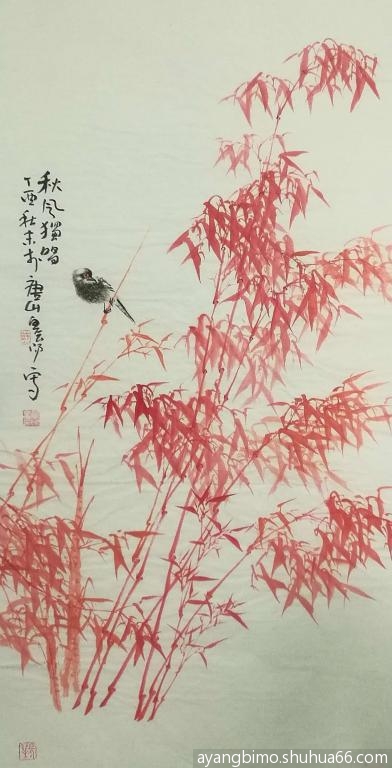 秋风独唱
丁酉秋末于唐山
ayangbimo.shuhua66.com